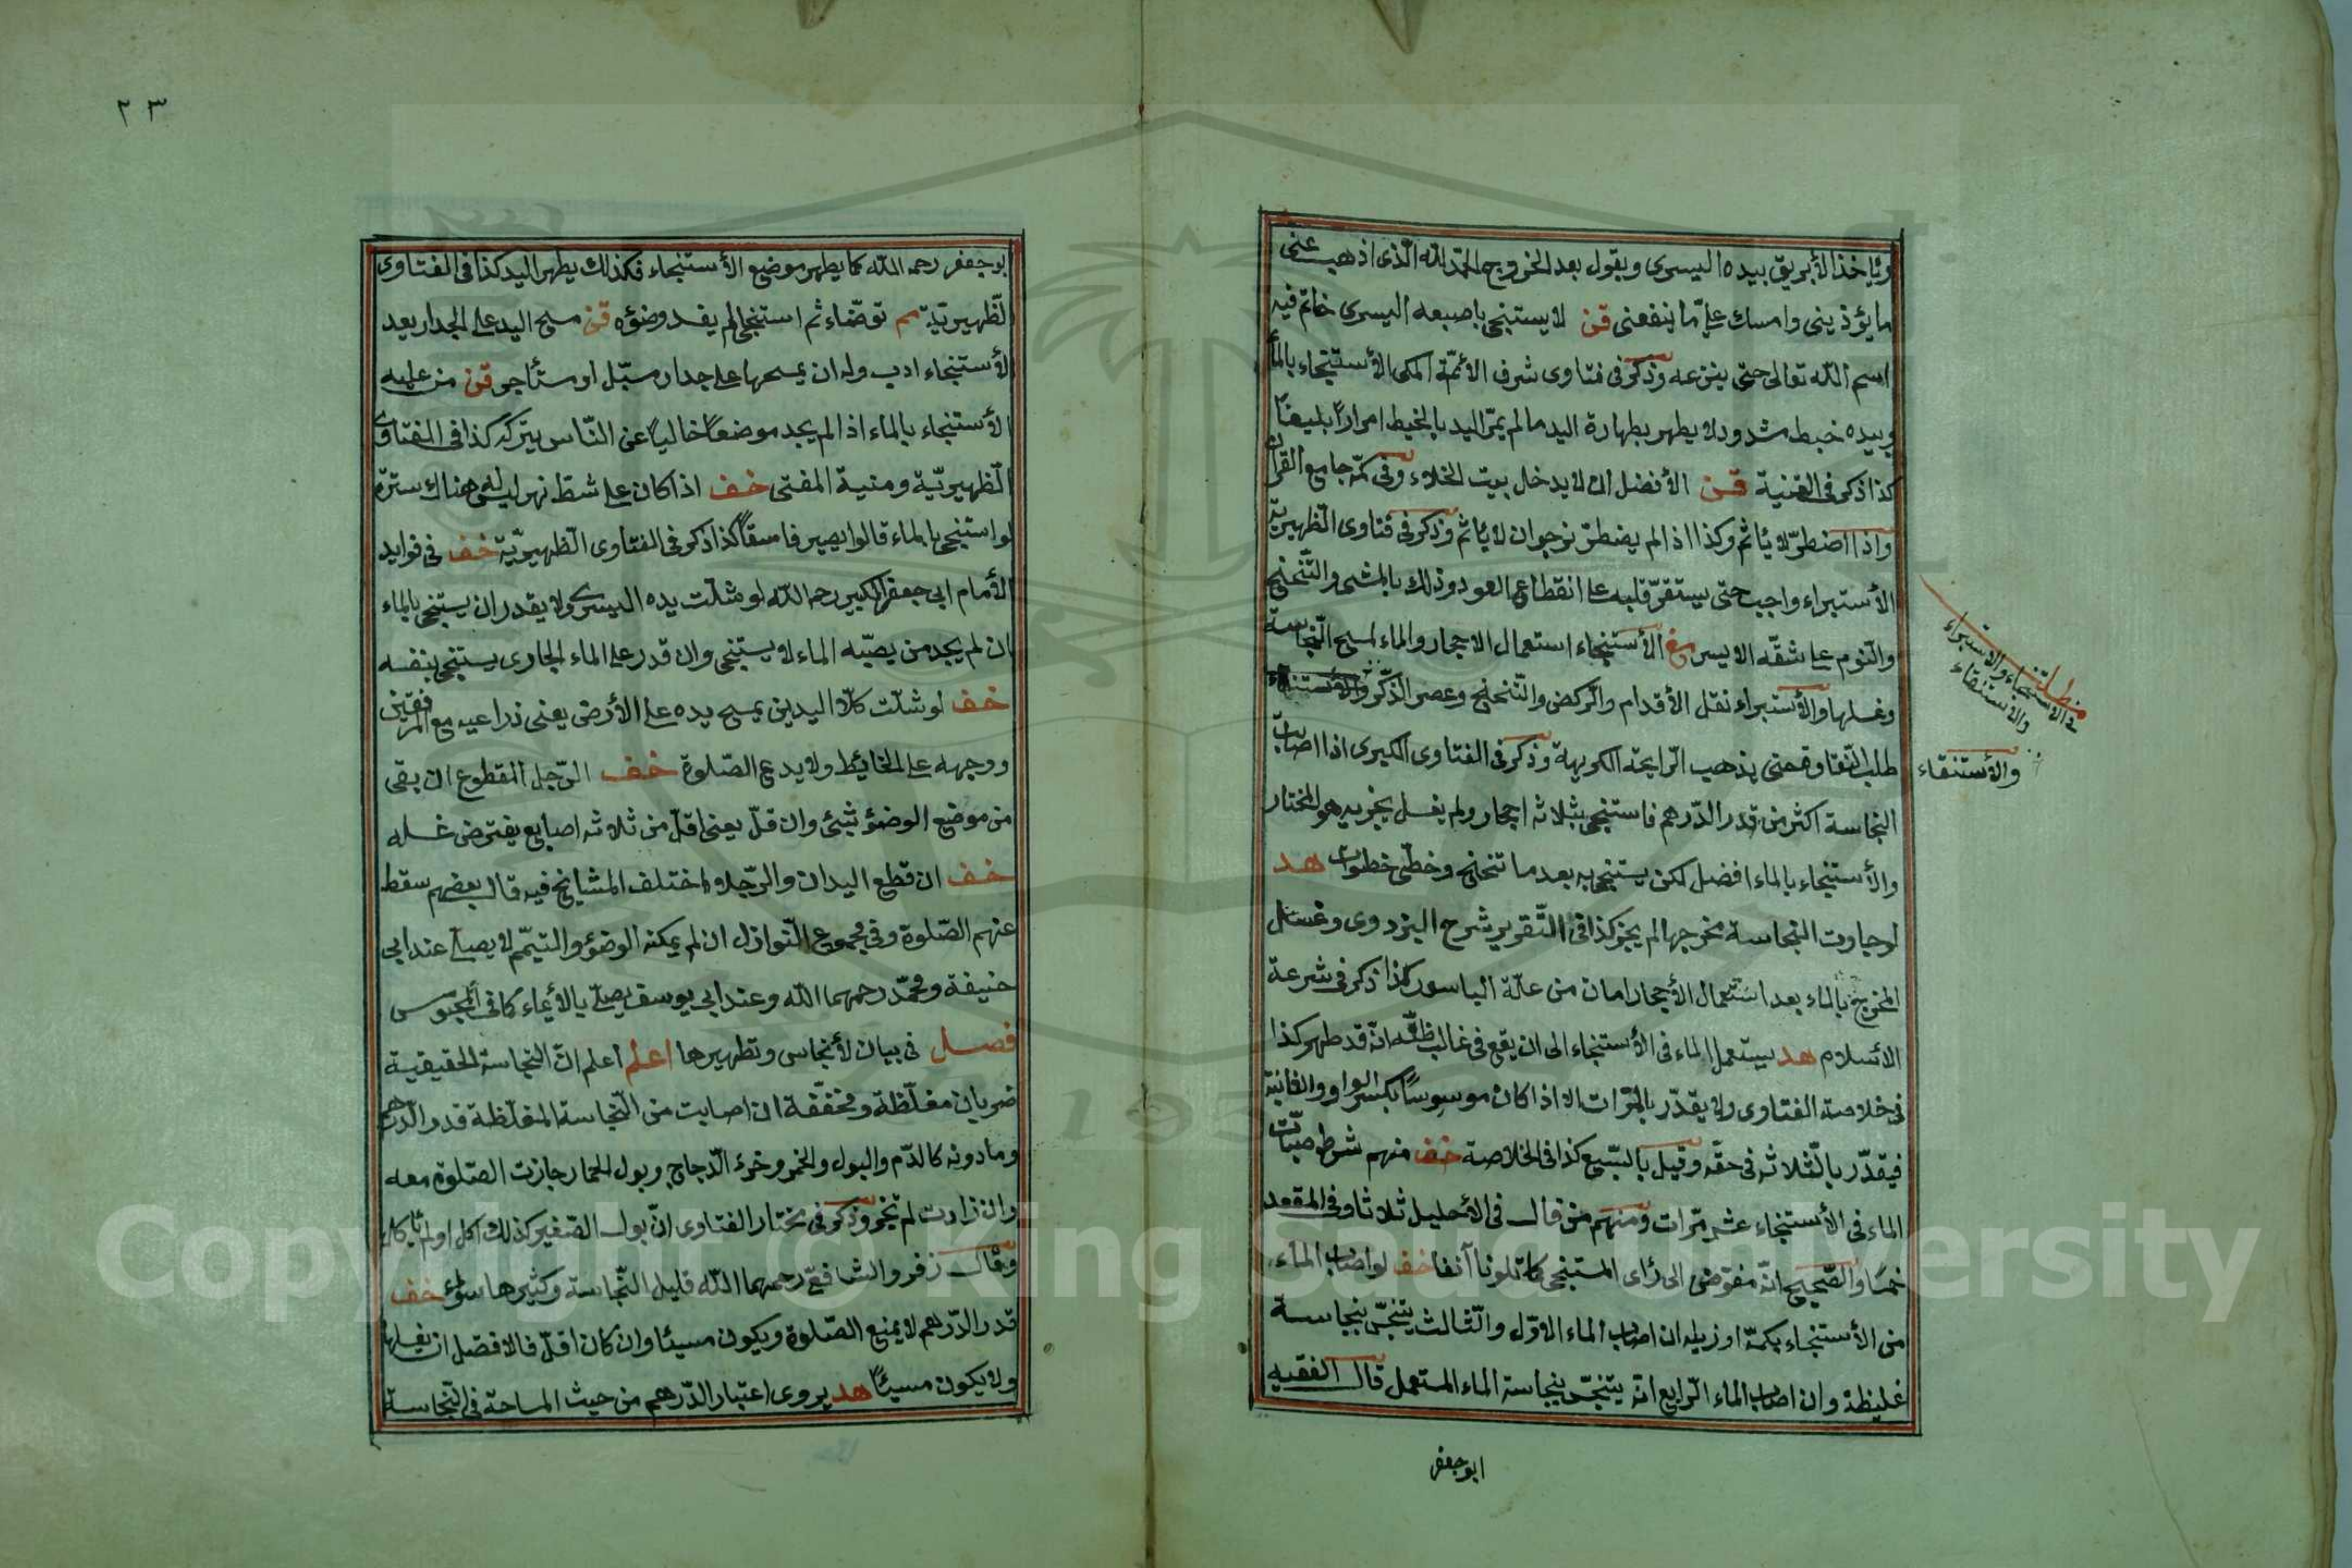 ويأخذ الأبريق بيده اليسرى ويقول بعد الخروج الحمد لله الذى اذهب عنى
ما يؤذينى وامسك علىّ ما ينفعنى قن لا يستنجى باصبعه اليسرى خاتم فيه
اسم الله تعالى حتى ينزعه وذكر فى فتاوى شرف الأئمّة المكى الأستنجاء بالماء
وبيده خيط مشدود لا يطهر بطهارة اليد مالم يمرّ اليد بالخيط امراراً بليغاً
كذا ذكر فى القنية قن الأفضل ان لا يدخل بيت الخلاء وفى كمّه جامع القرآن
واذا اضطرّ لا يأثم وكذا اذ الم يضطرّ نرجوان لا يأثم وذكر فى فتاوى الظهيريّة
الأستبراء واجب حتى يستقرّ قلبه على انقطاع العود وذلك بالمشى والتّنحنح
والنّوم على شقّه الايسر مغ الأستنجاء استعمال الاحجار والماء لمسح النّجاسة
وغسلها والأستبراء نقل الأقدام والرّكض والتّنحنح وعصر الذّكر
طلب النّقاوة حتى يذهب الرّايحة الكريهة وذكر فى الفتاوى الكبرى اذا اصاب
النجاسة اكثر من قدر الدّرهم فاستنجى بثلاثه احجار ولم يغسل يجزيه هو المختار
والأستنجاء بالماء افضل لكن يستنجى به بعد ما تنحنح وخطّى خطوات هد
لو جاوت النجاسة مخرجها لم يجز كذا فى التّقرير شرح البزدوى وغسل
المخرج بالماء بعد استعمال الأحجار امان من علّة الباسور كذا ذكر فى شرعة
الأسلام هد يستعمل الماء فى الأستنجاء الى ان يقع فى غالب ظنّه انّه قد طهر كذا
فى خلاصة الفتاوى ولا يقدّر بالمرّات الا اذا كان موسوسًا بكسر الواو والثانية
فيقدّر بالثلاثه فى حقّه وقيل بالسّبع كذا فى الخلاصة خف منهم شرط صبّات
الماء فى الأستنجاء عشر مرّات ومنهم من قال فى الأحليل ثلاثا وفى المقعد
خمسًا والصّحيح انّه مفوّض الى رأى المستنجى كما تلونا آنفا خف لو اصاب الماء
من الأستنجاء بكمّه او زيله ان اصاب الماء الاوّل والثّالث يتنجّس بنجاسة
غليظة وان اصاب الماء الرّابع انّه يتنجّس بنجاسة الماء المستعمل قال الفقيه
ابو جعفر
مطلب
فى الاستنجاء والاستبراء
والاستنقاء
والأستنقاء
٢٣
ابو جعفر رحمه الله كما يطهر موضع الأستنجاء فكذلك يطهر اليد كذا فى الفتاوى
الظّهيريّة مم توضّاء ثم استنجى لم يفسد وضوؤه قن مسح اليد على الجدار بعد
الأستنجاء ادب وله ان يمسحها على جدار مسبّل او مستأجر قن من عليه
الأستنجاء بالماء اذ الم يجد موضعاً خالياً عن النّاس يتركه كذا فى الفتاوى
الظّهيريّة ومنية المفتى خف اذا كان على شطّ نهر ليس هناك سترة
لو استنجى بالماء قالوا يصير فاسقاً كذا ذكر فى الفتاوى الظّهيريّة خف فى فوايد
الأمام ابى جعفر الكبير رحمه الله لو شلّت يده اليسرى ولا يقدر ان يستنجى بالماء
ان لم يجد من يصبّه الماء لا يستنجى وان قدر على الماء الجارى يستنجى بنفسه
خف لو شلّت كلاّ اليدين يمسح يده على الأرض يعنى ذراعيه مع المرفقين
ووجهه على الحائط ولا يدع الصّلوة خف الرّجل المقطوع ان بقى
من موضع الوضؤ شئ وان قلّ يعنى اقلّ من ثلاثه اصابع يفترض غسله
خف ان قطع اليدان والرّجلان اختلف المشايخ فيه قال بعضهم سقط
عنهم الصّلوة وفى مجموع النّوازل ان لم يمكنه الوضؤ والتيمّم لا يصلّى عند ابى
حنيفة ومحمّد رحمهما الله وعند ابى يوسف يصلّى بالأيماء كما فى المحبوس
فصل فى بيان الأنجاس وتطهيرها اعلم اعلم انّ النجاسة الحقيقية
ضربان مغلّظة ومخفّفة ان اصابت من النّجاسة المغلّظة قدر الدّرهم
وما دونه كالدّم والبول والخمر وخرء الدّجاج وبول الحمار جازت الصّلوة معه
وان زادت لم تجز وذكر فى مختار الفتاوى انّ بول الصّغير كذلك اكل او لم يأكل
وقال زفر والشافعىّ رحمهما الله قليل النّجاسة وكثيرها سواء خف
قدر الدّرهم لا يمنع الصّلوة ويكون مسيئا وان كان اقلّ فالافضل ان يغسلها
ولا يكون مسيئاً هد يروى اعتبار الدّرهم من حيث المساحة فى النّجاسة
Copyright © King Saud University